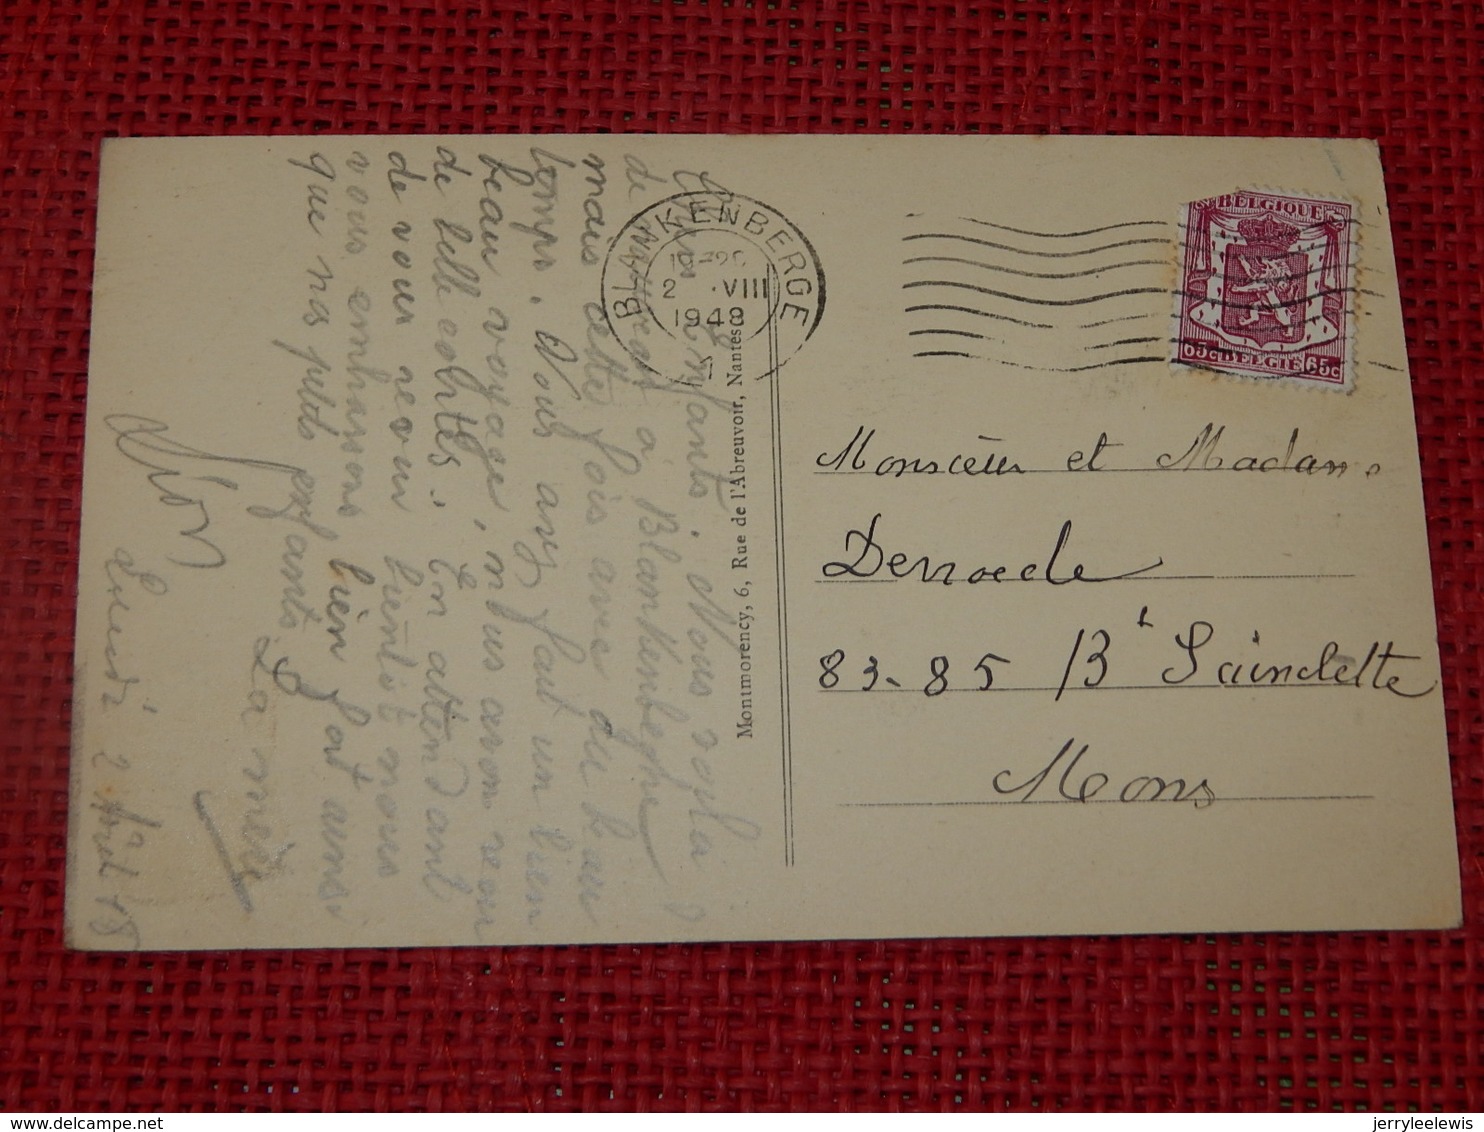 Chers Enfants. Nous voila
de retour a Blankenberghe
mais cette fois avec du beau
temps. Nous avez fait un bien
beau voyage, nous avon revu
de belle contes. En attendant
de vour revour bientôt nous
vous embrassons bien fort ainsi
que nos petits enfants.
La mère
Lundi 2 Aout 48
BLANKENBERGE
2 VIII
1948
BELGIQUE
65c BELGIE 65c
Montmorency, 6, Rue de l'Abreuvoir, Nantes
Monsieur et Madame
Denoele
83-85 Bt Sainclette
Mons
delcampe.net
jerryleelewis